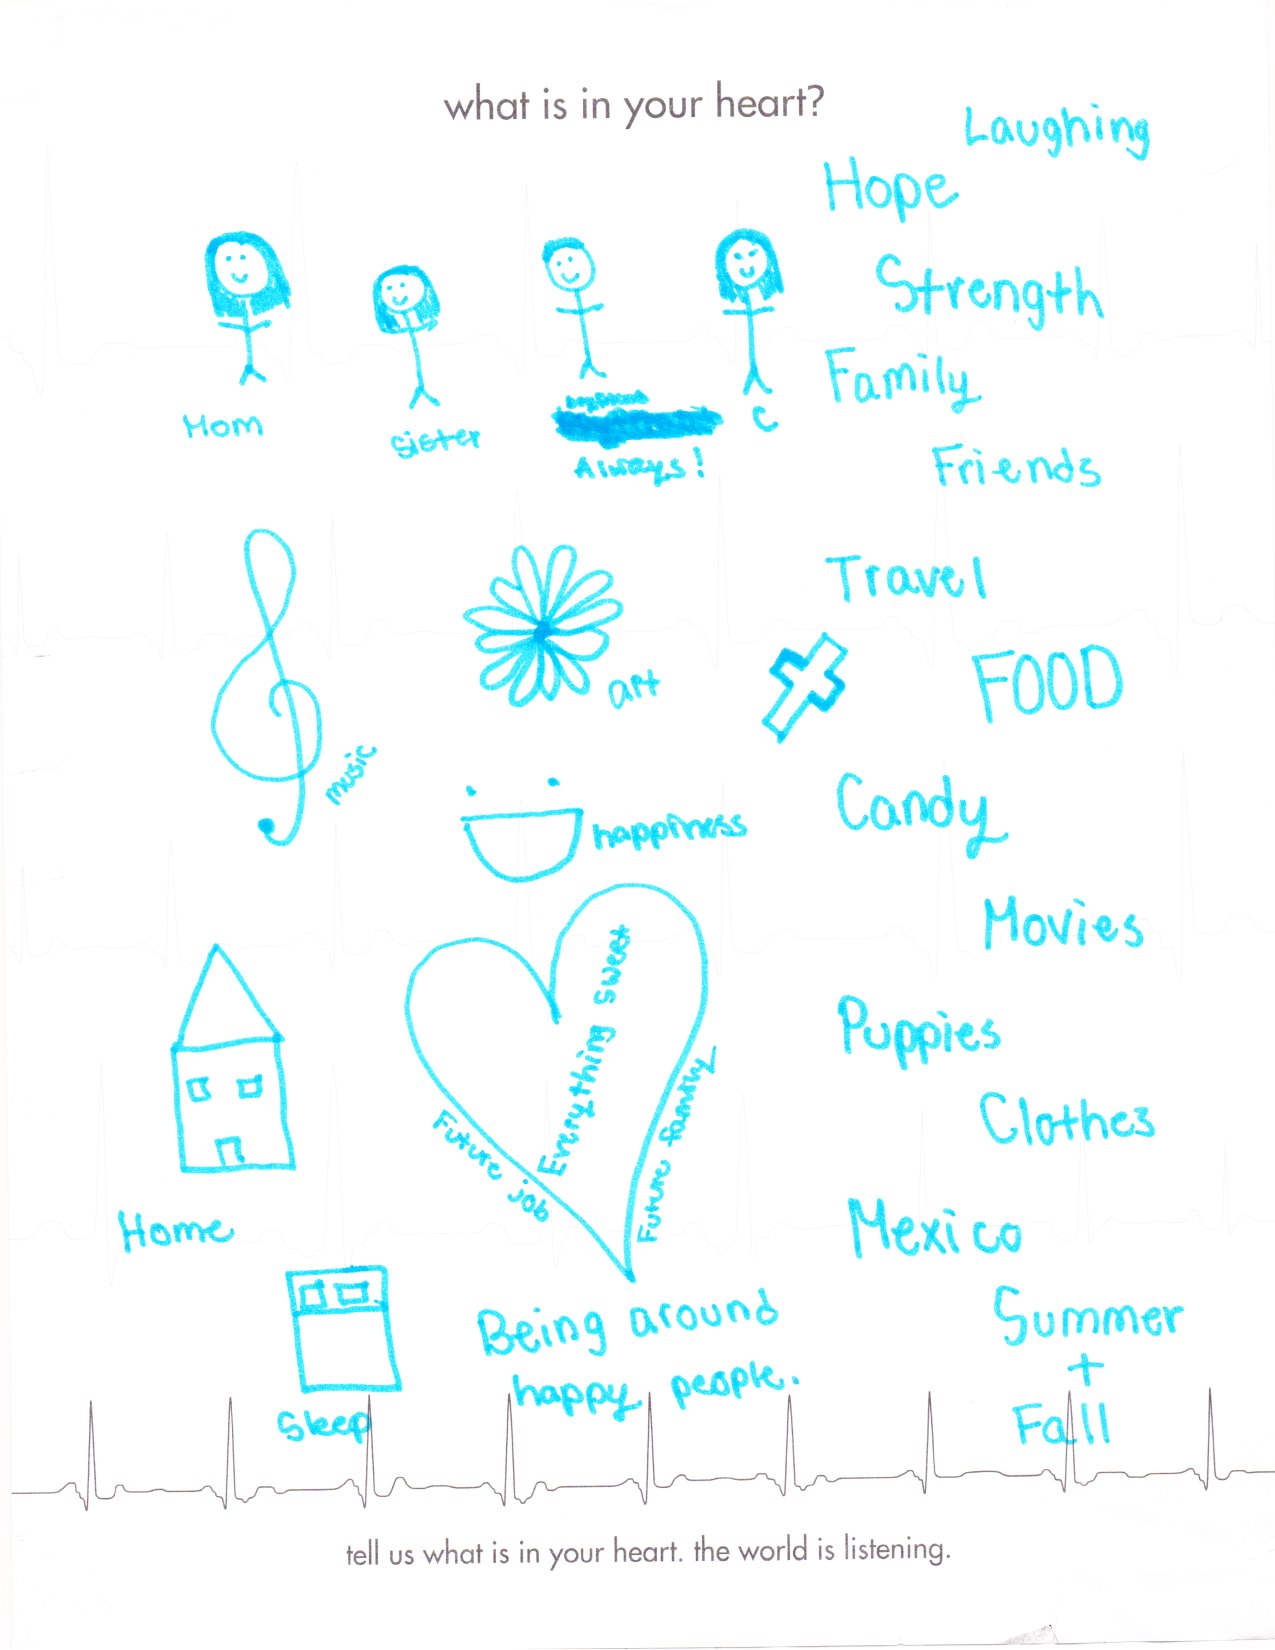 what is in your heart?
Laughing
Hope
Strength
Family
Friends
Mom
sister
Always!
C
Travel
FOOD
art
music
happiness
Candy
Movies
Everything sweet
Future job
Future family
Puppies
Clothes
Home
Mexico
Being around
happy people.
Summer
+
Fall
Sleep
tell us what is in your heart. the world is listening.